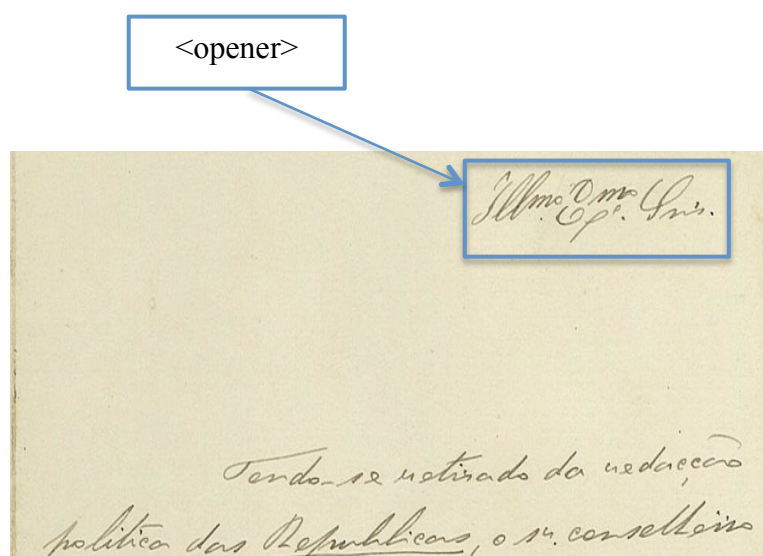 <opener>
Illmo. Exmo. Snrs.
Tendo-se retirado da redacção
politica das Republicas, o sr. conselheiro